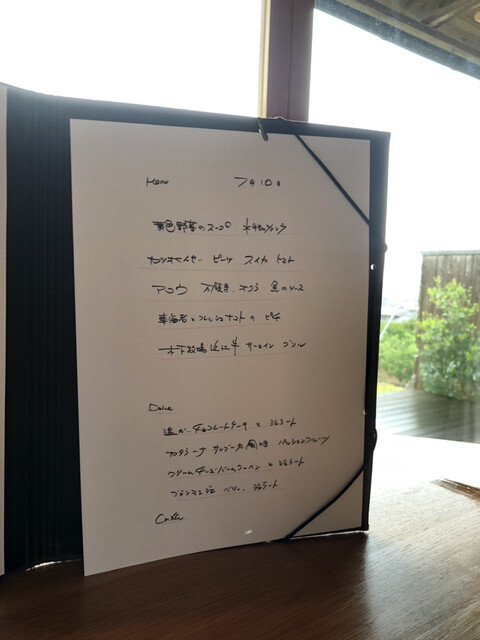 Menu 7月10日
黄色野菜のスープ
カツオくんせー ビーツ スイカ トマト
アロウ 万願寺、オクラ 魚のソース
車海老とフレッシュトマトの
木下牧場近江牛 サーロイン グリル
Dolce
温かいチョコレートケーキ と ジェラート
カタラーナ サングリア風味 パッションフルーツ
クリームチーズバームクーヘン と ジェラート
ブランマンジェ ベリー、ジェラート